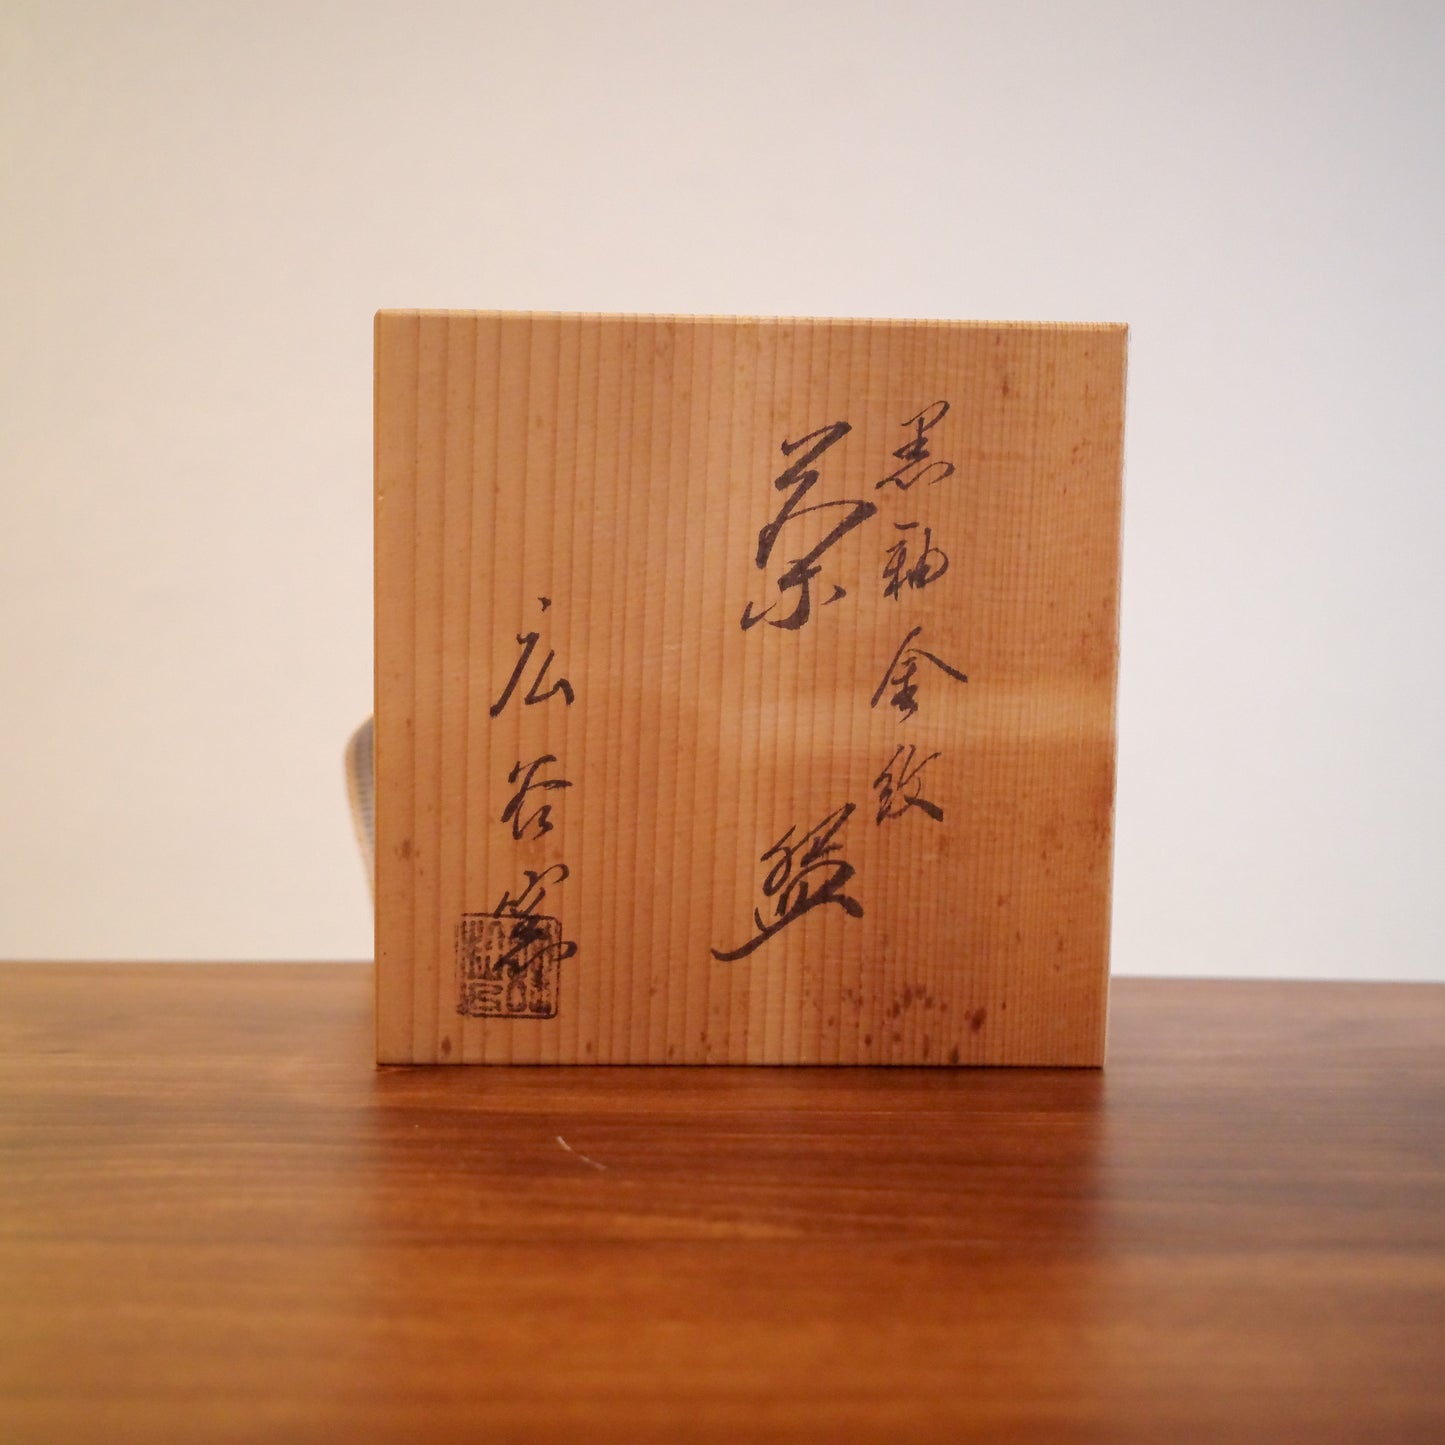 黒釉金紋
茶盌
広谷窯